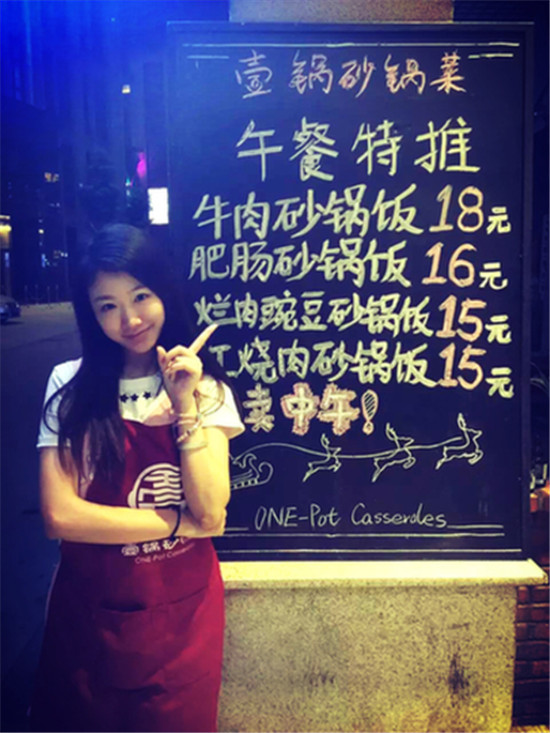 壹锅砂锅菜
午餐特推
牛肉砂锅饭 18元
肥肠砂锅饭 16元
烂肉豌豆砂锅饭 15元
烧肉砂锅饭 15元
卖中午!
ONE-Pot Casseroles
壹锅砂
ONE-Pot Casseroles